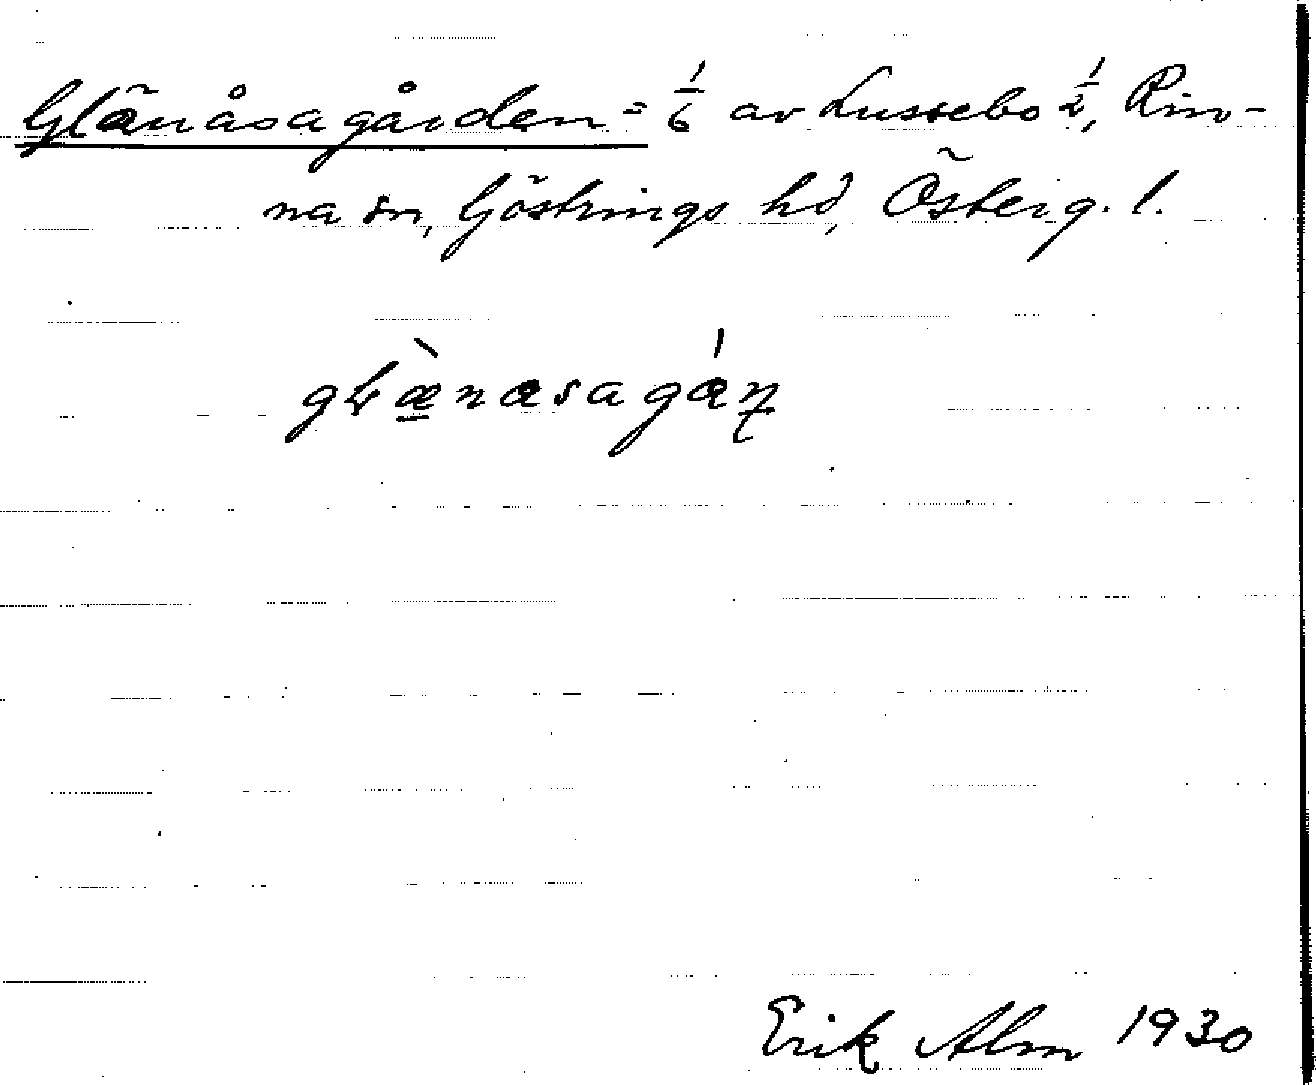 Glänåsagården = 1/6 av Lussebo 1/2, Rin-
na sn, Göstrings hd, Österg. l.
Erik Alm 1930